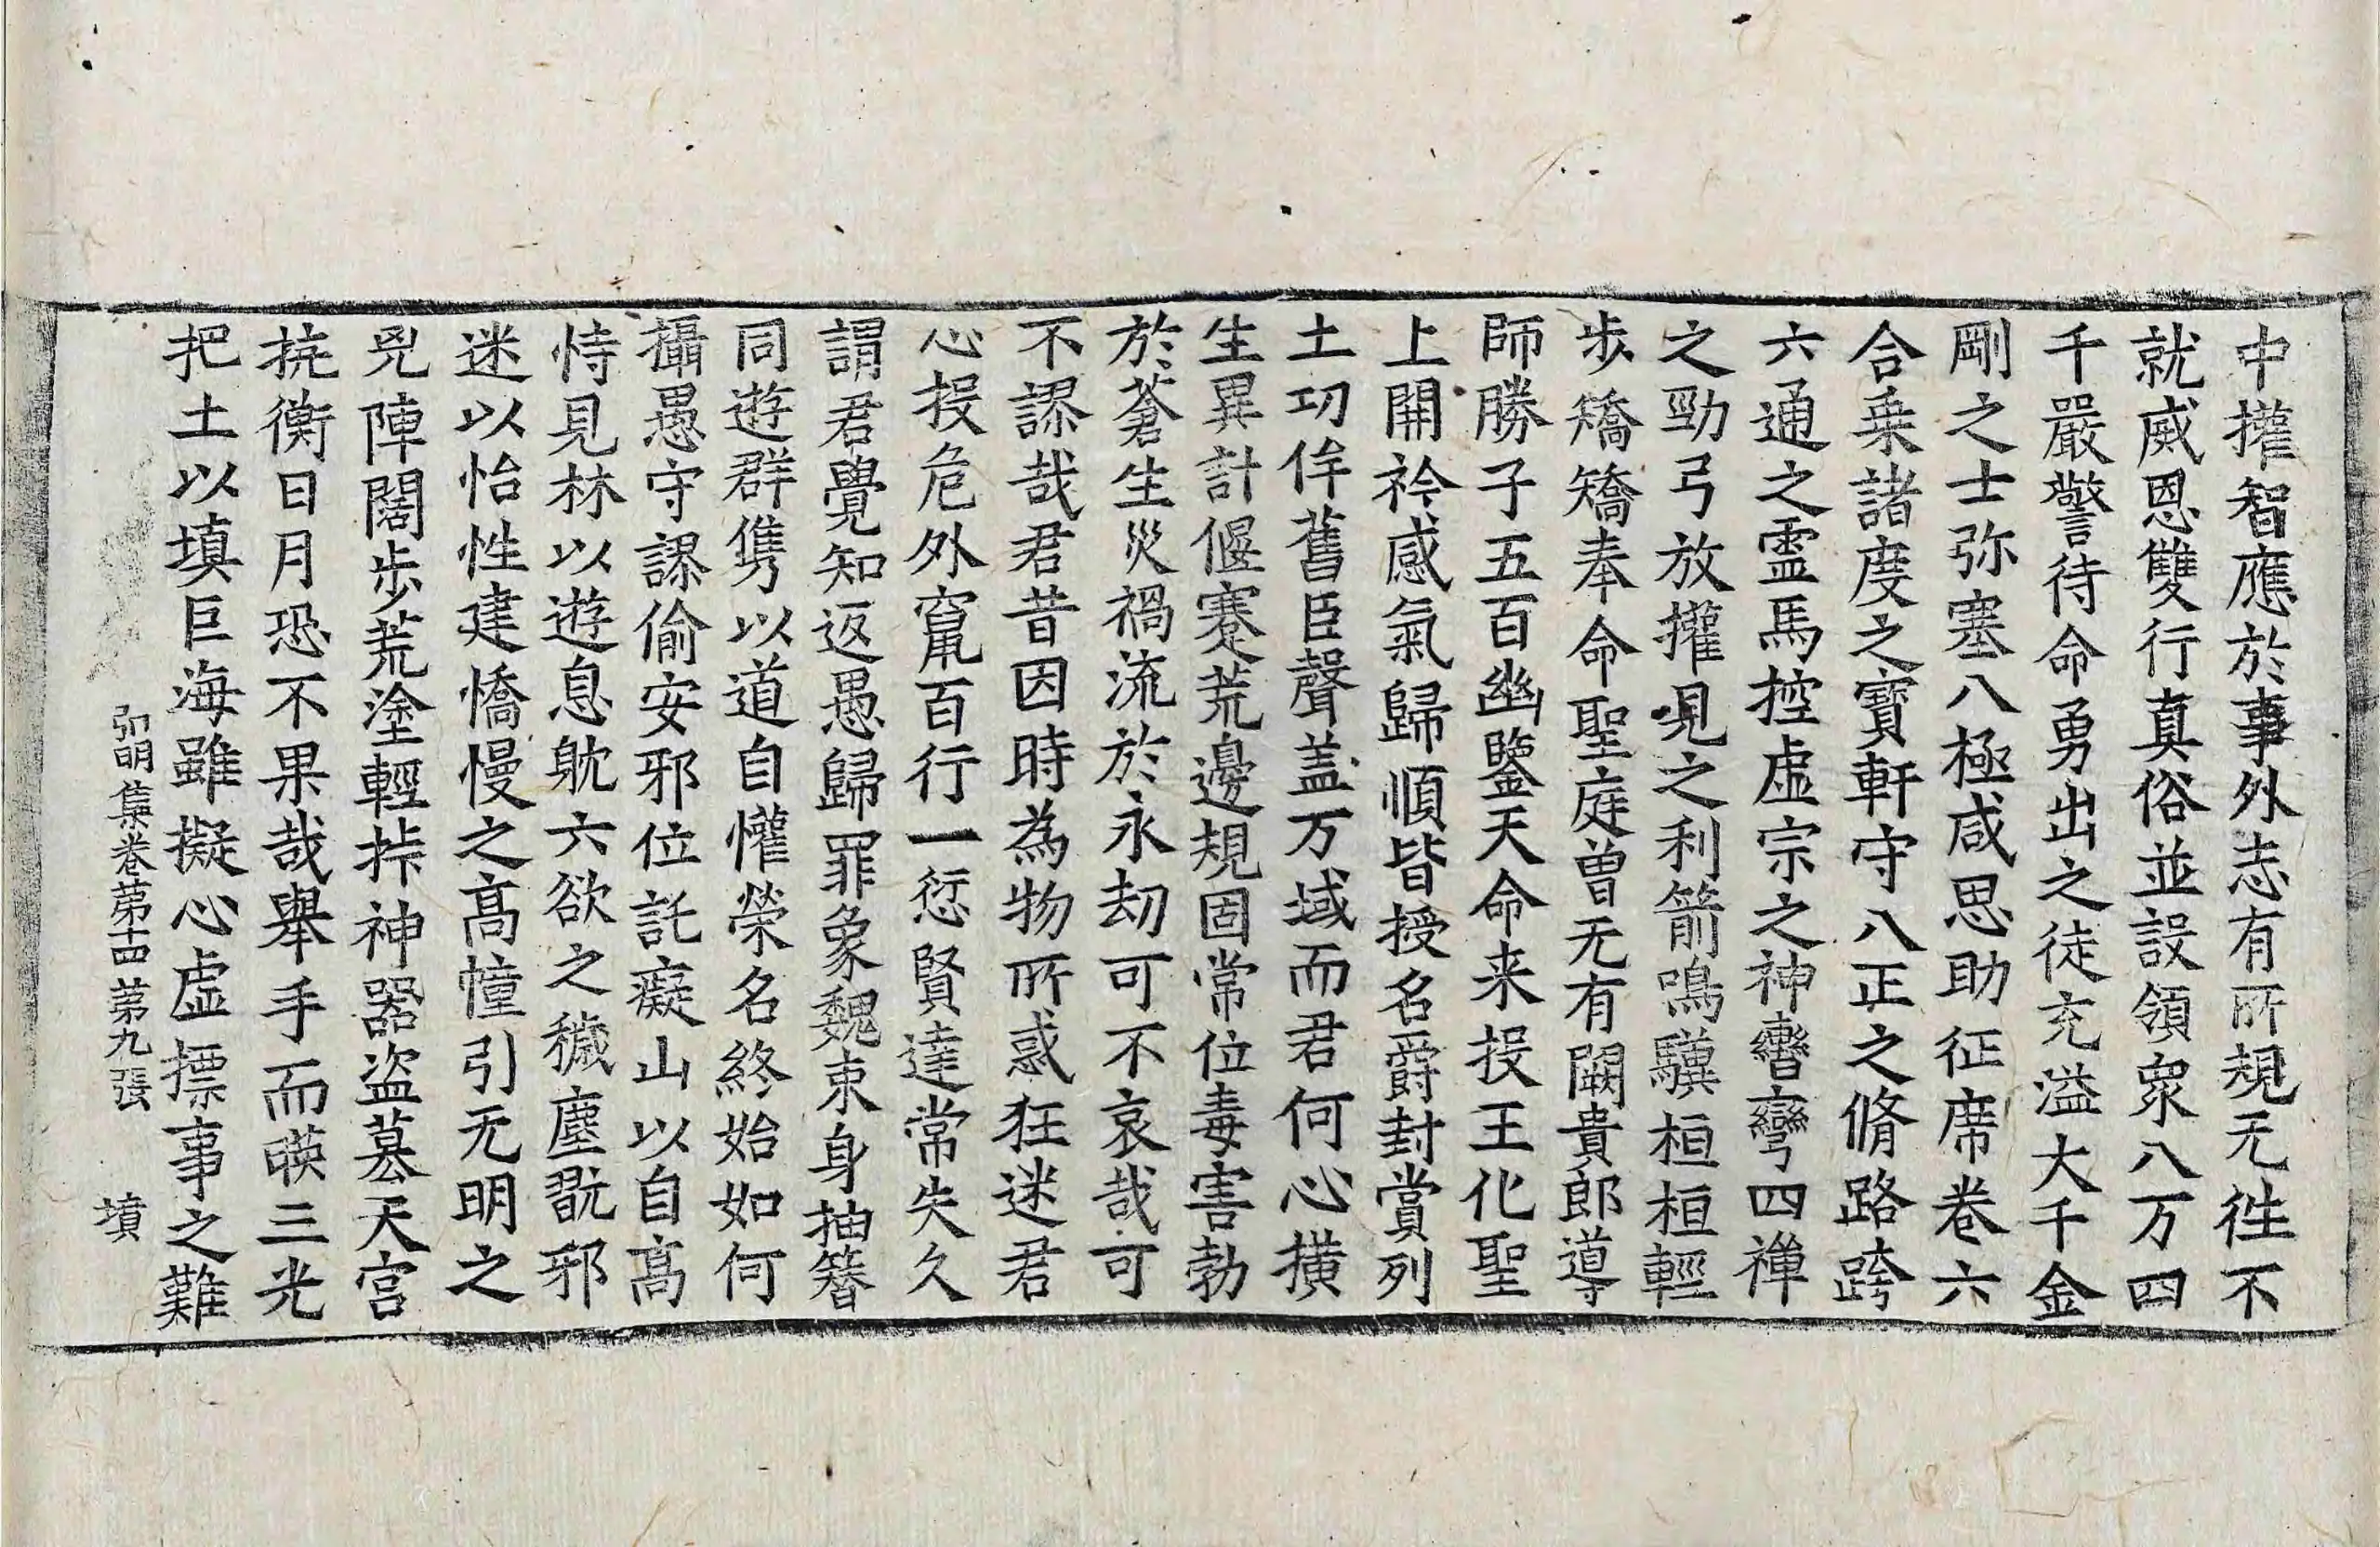 中攉智應於事外志有所規无往不
就威恩雙行真俗並設領衆八万四
千嚴警待命勇出之徒充溢大千金
剛之士弥塞八極咸思助征席卷六
合乗諸度之寶軒守八正之脩路跨
六通之霊馬控虛宗之神轡彎四禅
之勁弓放攉見之利箭鳴驥桓桓輕
步矯矯奉命聖庭曽无有闕貴郎導
師勝子五百幽鑒天命来投王化聖
上開衿感氣歸順皆授名爵封賞列
土功侔舊臣聲盖万域而君何心横
生異計偃蹇荒邊規固常位毒害勃
於蒼生災禍流於永劫可不哀哉可
不謬哉君昔因時為物所惑狂迷君
心投危外竄百行一愆賢達常失久
謂君覺知返愚歸罪象魏束身抽簪
同遊群儁以道自懽榮名終始如何
攝愚守謬偷安邪位託癡山以自高
恃見林以遊息躭六欲之穢塵翫邪
迷以怡性建憍慢之高幢引无明之
兇陣闊步荒塗輕抃神器盗墓天宮
撓衡日月恐不果哉舉手而暎三光
把土以填巨海雖擬心虛摽事之難
弘明集卷第十四 第九張 墳